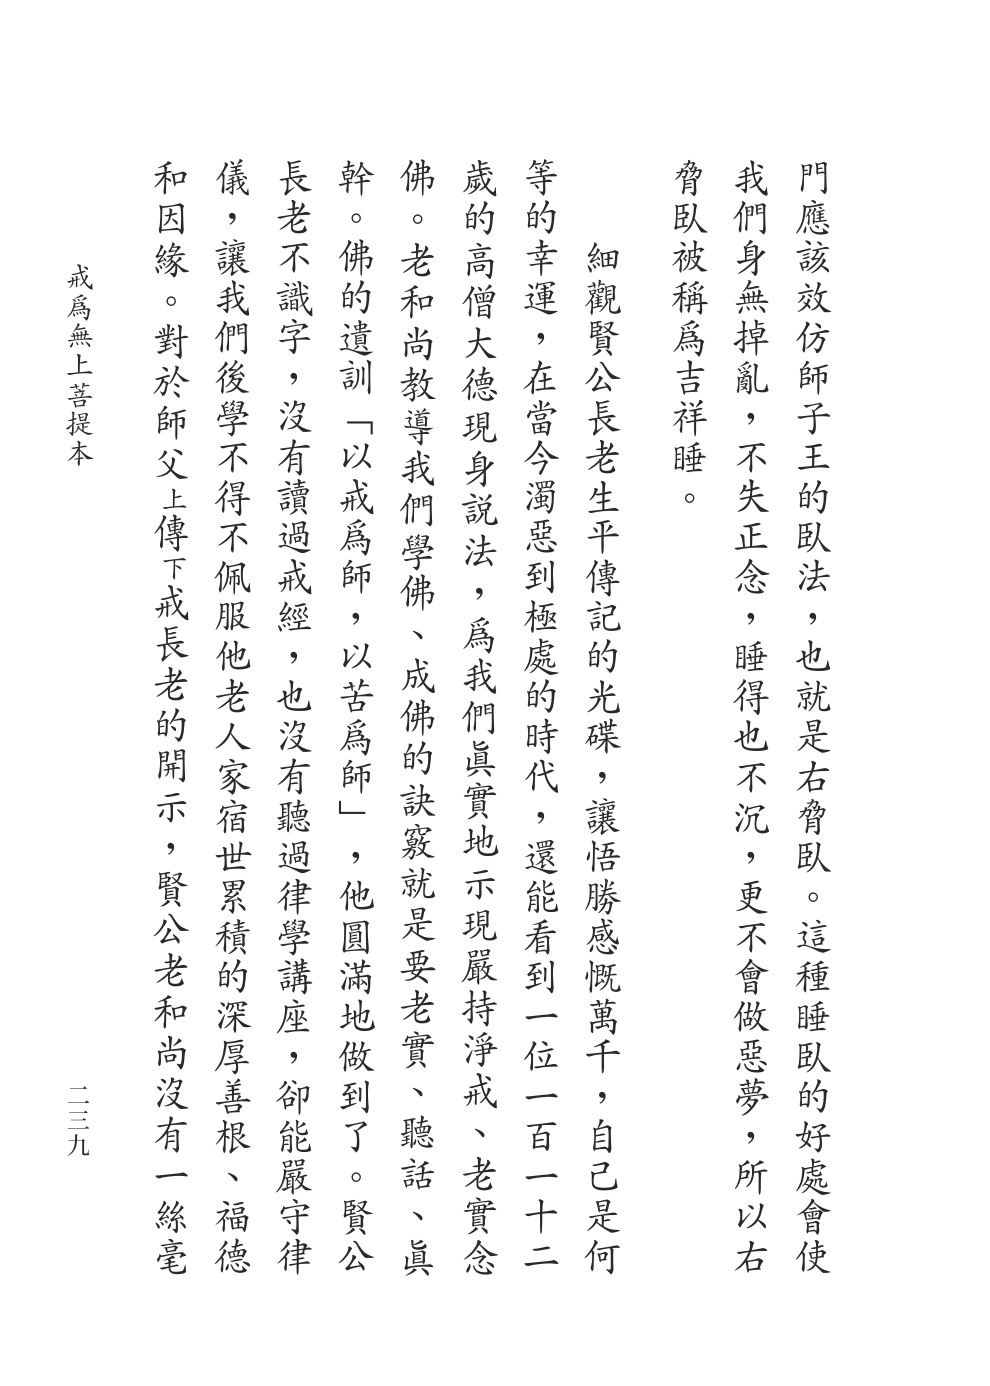 門應該效仿師子王的臥法，也就是右脅臥。這種睡臥的好處會使
我們身無掉亂，不失正念，睡得也不沉，更不會做惡夢，所以右
脅臥被稱爲吉祥睡。
細觀賢公長老生平傳記的光碟，讓悟勝感慨萬千，自己是何
等的幸運，在當今濁惡到極處的時代，還能看到一位一百一十二
歲的高僧大德現身説法，爲我們眞實地示現嚴持淨戒、老實念
佛。老和尚教導我們學佛、成佛的訣竅就是要老實、聽話、眞
幹。佛的遺訓「以戒爲師，以苦爲師」，他圓滿地做到了。賢公
長老不識字，沒有讀過戒經，也沒有聽過律學講座，卻能嚴守律
儀，讓我們後學不得不佩服他老人家宿世累積的深厚善根、福德
和因緣。對於師父上傳下戒長老的開示，賢公老和尚沒有一絲毫
戒爲無上菩提本
二三九